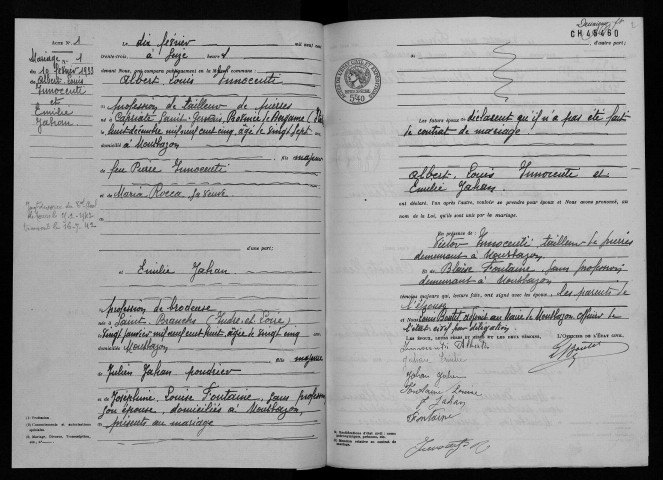 ACTE N.° 1
Mariage n° 1
du 10 février 1933
Albert Louis
Innocenti
et
Emilie
Jahan
Le dix février mil neuf cent
trente-trois, à seize heures
devant Nous, ont comparu publiquement en la commune :
Albert, Louis Innocenti
profession de tailleur de pierres
né à Capriate Saint-Gervais, Province de Bergame
huit décembre mil neuf cent cinq, âgé de vingt sept
domicilié à Montbazon
fils majeur
de feu Pierre Innocenti
et de Maria Rocca sa veuve
d'une part;
et Emilie Jahan
profession de brodeuse
née à Saint-Branchs (Indre-et-Loire)
vingt janvier mil neuf cent huit, âgée de vingt cinq
domiciliée Montbazon
fille majeure
de Julien Jahan poudrier
et de Joséphine, Louise Fontaine, sans profession
son épouse, domiciliés à Montbazon,
présents au mariage
(1) Profession
CH 46460
d'autre part;
5F40
Les futurs époux déclarent qu'il n'a pas été fait
de contrat de mariage
Albert, Louis Innocenti et
Emilie Jahan
ont déclaré, l'un après l'autre, vouloir se prendre pour époux et Nous avons prononcé, au
nom de la Loi, qu'ils sont unis par le mariage.
En présence de : Victor Innocenti tailleur de pierres
demeurant à Montbazon
Et de Blaise Fontaine, sans profession
demeurant à Montbazon
témoins majeurs qui, lecture faite, ont signé avec les époux, les parents de
l'épouse
et Nous adjoint au Maire de Montbazon officier de
l'état-civil par délégation.
LES ÉPOUX, LEURS PÈRES ET MÈRES ET LES DEUX TÉMOINS,
L'OFFICIER DE L'ÉTAT CIVIL,
Innocenti Albert
Jahan Emilie
Jahan Julien
Fontaine Louise
Jahan
Fontaine